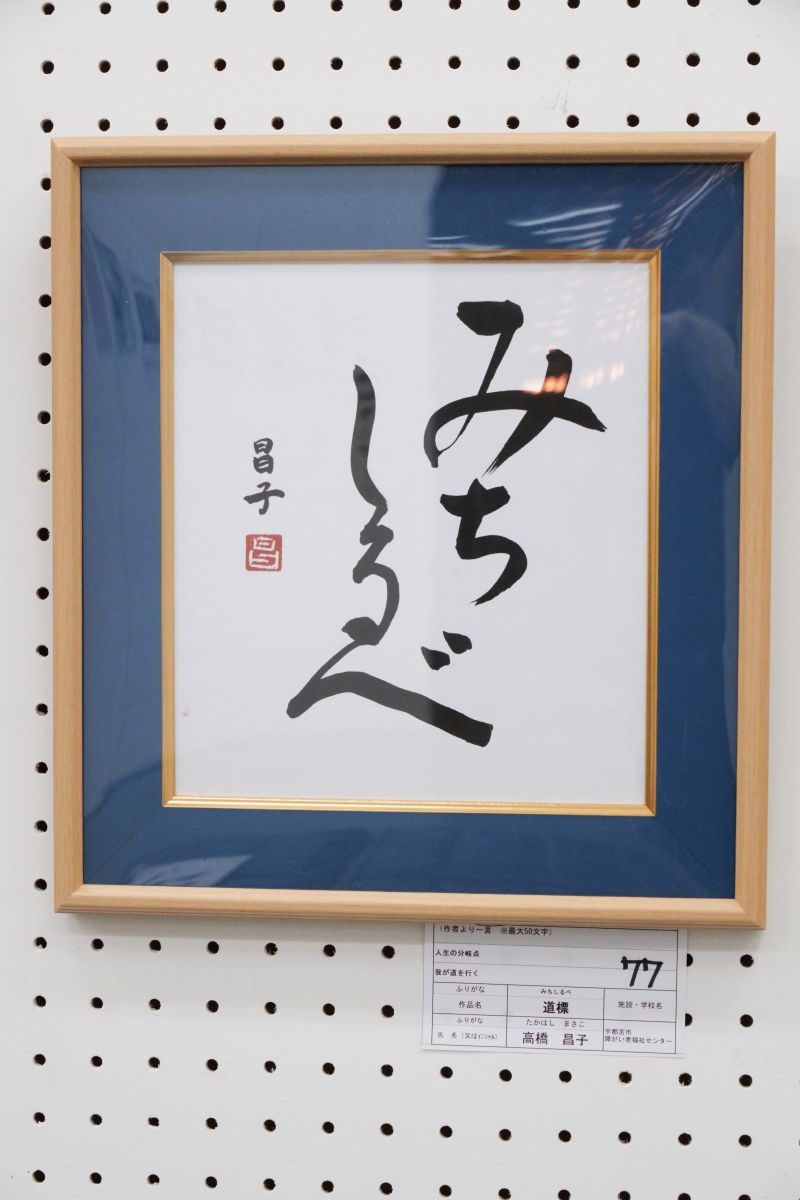 みち
しるべ
昌子
昌
（作者より一言　※最大50文字）
人生の分岐点
我が道を行く
77
ふりがな　みちしるべ
作品名　道標　施設・学校名
ふりがな　たかはし　まさこ
氏　名（又はｲﾆｼｬﾙ）　高橋　昌子　宇都宮市
障がい者福祉センター